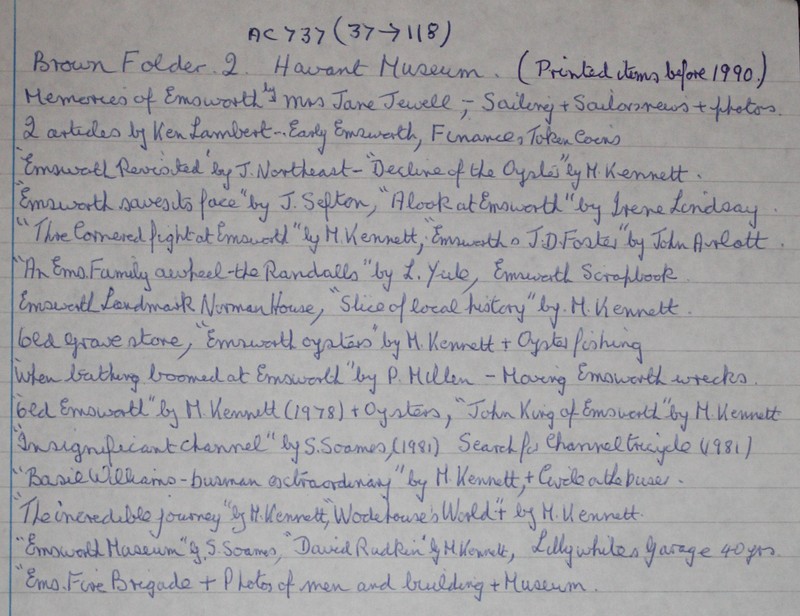 AC737 (37→118)
Brown Folder. 2. Havant Museum. (Printed items before 1990.)
Memories of Emsworth by Mrs Jane Jewell, - Sailing + Sailorsnews + photos.
2 articles by Ken Lambert - Early Emsworth, Finance, Token Coins
"Emsworth Revisited" by J. Northeast - "Decline of the Oyster" by M. Kennett.
"Emsworth saves its face" by J. Sefton, "A look at Emsworth" by Irene Lindsay.
"Three Cornered fight at Emsworth" by M. Kennett, "Emsworth's J.D. Foster" by John Arlott.
"An Ems. Family awheel - the Randalls" by L. Yule, Emsworth Scrapbook
Emsworth Landmark Norman House, "Slice of local history" by M. Kennett.
Old Grave stone, "Emsworth oysters" by M. Kennett + Oyster fishing
"When bathing boomed at Emsworth" by P. Millen - Moving Emsworth wrecks.
"Old Emsworth" by M. Kennett (1978) + Oysters, "John King of Emsworth" by M. Kennett
"Insignificant Channel" by S. Soames, (1981) Search for Channel tricycle (1981)
"Basil Williams - busman extraordinary" by M. Kennett, +
"The incredible journey" by M. Kennett, "Wodehouse's World" + by M. Kennett.
"Emsworth Museum" by S. Soames, "David Rudkin" by M Kennett, Lillywhites Garage 40 yrs.
"Ems. Fire Brigade + Photos of men and building + Museum.